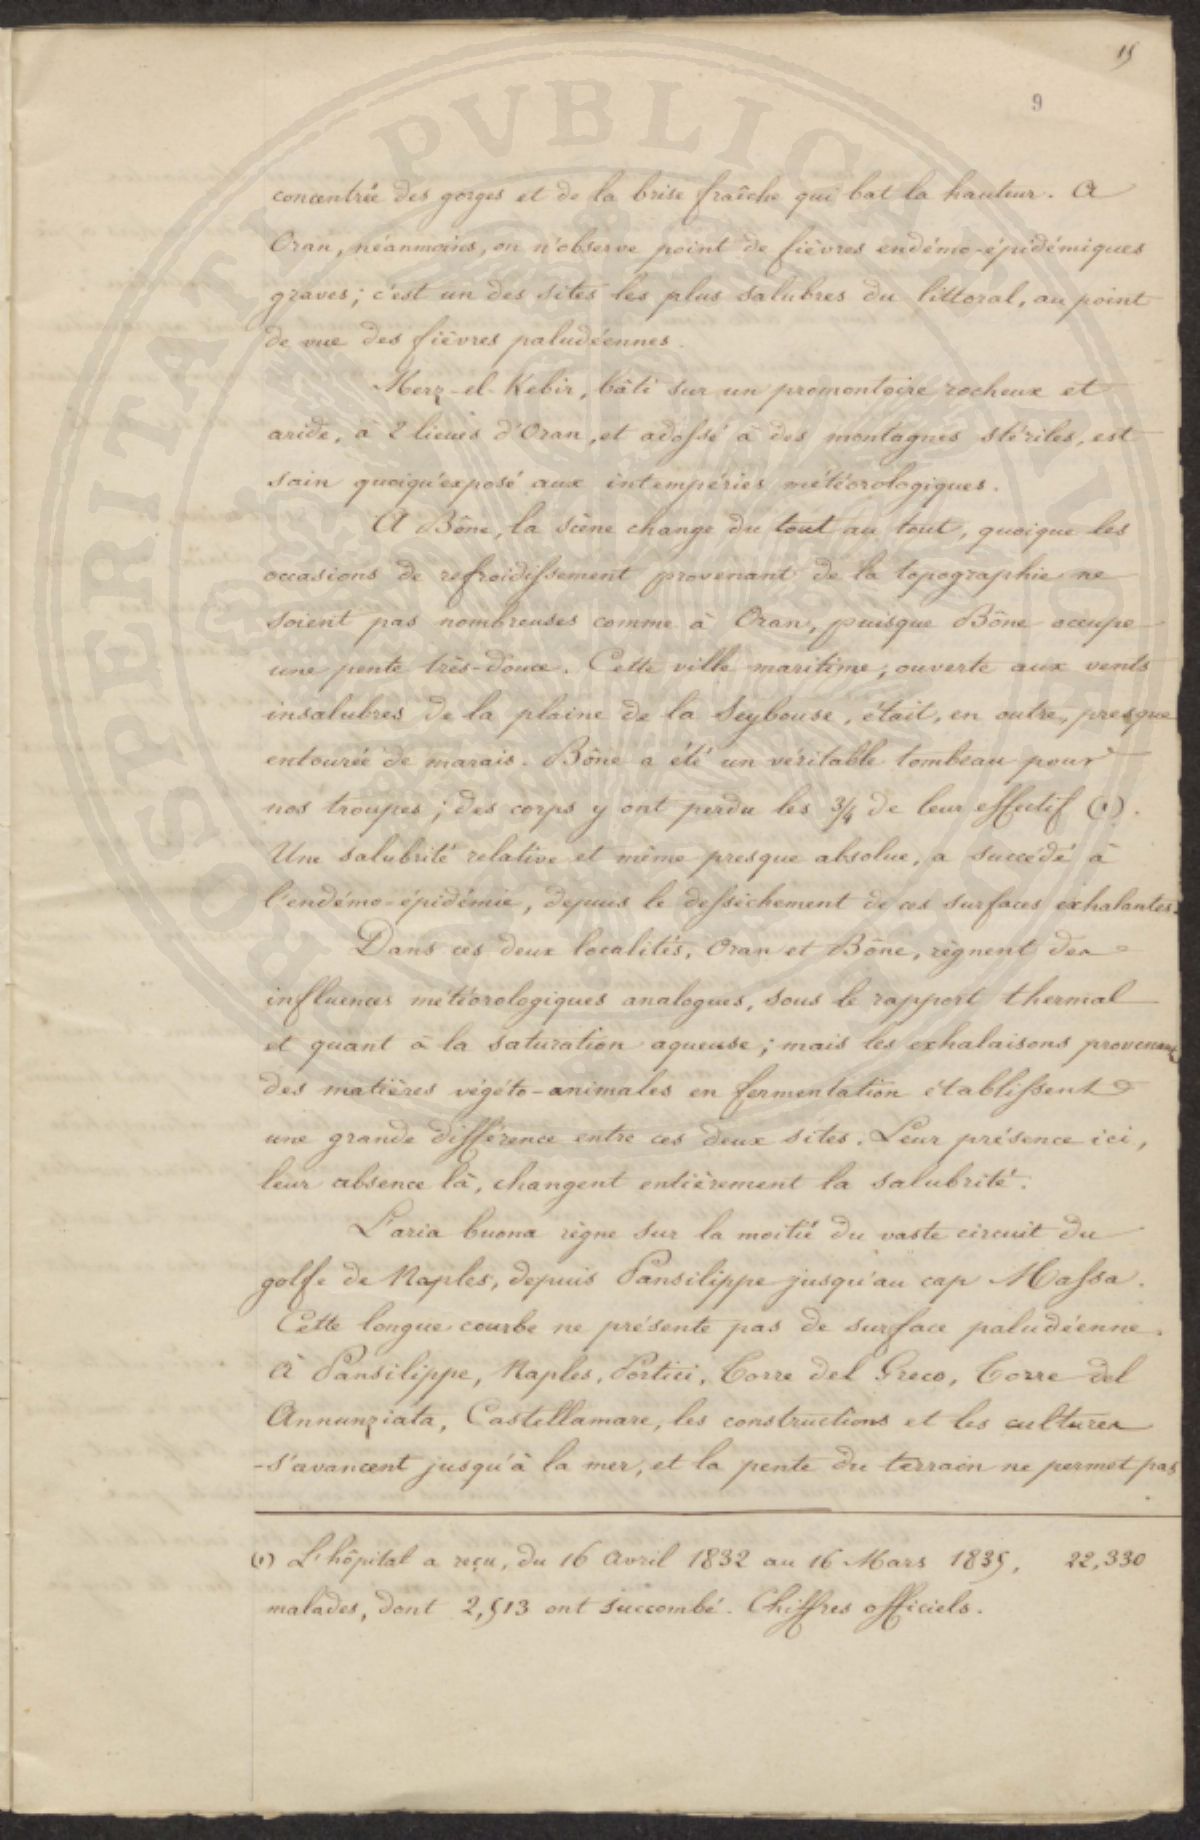 15
9
concentrée des gorges et de la brise fraîche qui bat la hauteur. A
Oran, néanmoins, on n'observe point de fièvres endémo-épidémiques
graves; c'est un des sites les plus salubres du littoral, au point
de vue des fièvres paludéennes.
Merz-el-Kebir, bâti sur un promontoire rocheux et
aride, à 2 lieues d'Oran, et adossé à des montagnes stériles, est
sain quoiqu'exposé aux intempéries météorologiques.
A Bône, la scène change du tout au tout, quoique les
occasions de refroidissement provenant de la topographie ne
soient pas nombreuses comme à Oran, puisque Bône occupe
une pente très-douce. Cette ville maritime, ouverte aux vents
insalubres de la plaine de la Seybouse, était, en outre, presque
entourée de marais. Bône a été un véritable tombeau pour
nos troupes; des corps y ont perdu les 3/4 de leur effectif (1).
Une salubrité relative et même presque absolue, a succédé à
l'endémo-épidémie, depuis le dessichement de ces surfaces exhalantes.
Dans ces deux localités, Oran et Bône, règnent des
influences météorologiques analogues, sous le rapport thermal
et quant à la saturation aqueuse; mais les exhalaisons provenant
des matières végéto-animales en fermentation établissent
une grande différence entre ces deux sites. Leur présence ici,
leur absence là, changent entièrement la salubrité.
L'aria buona règne sur la moitié du vaste circuit du
golfe de Naples, depuis Pausilippe jusqu'au cap Massa.
Cette longue courbe ne présente pas de surface paludéenne.
À Pausilippe, Naples, Portici, Torre del Greco, Torre del
Annunziata, Castellamare, les constructions et les cultures
s'avancent jusqu'à la mer, et la pente du terrain ne permet pas
(1) L'hôpital a reçu, du 16 Avril 1832 au 16 Mars 1835, 22,330
malades, dont 2,513 ont succombé. Chiffres officiels.
PROSPERITATI PVBLICAE AVGENDAE